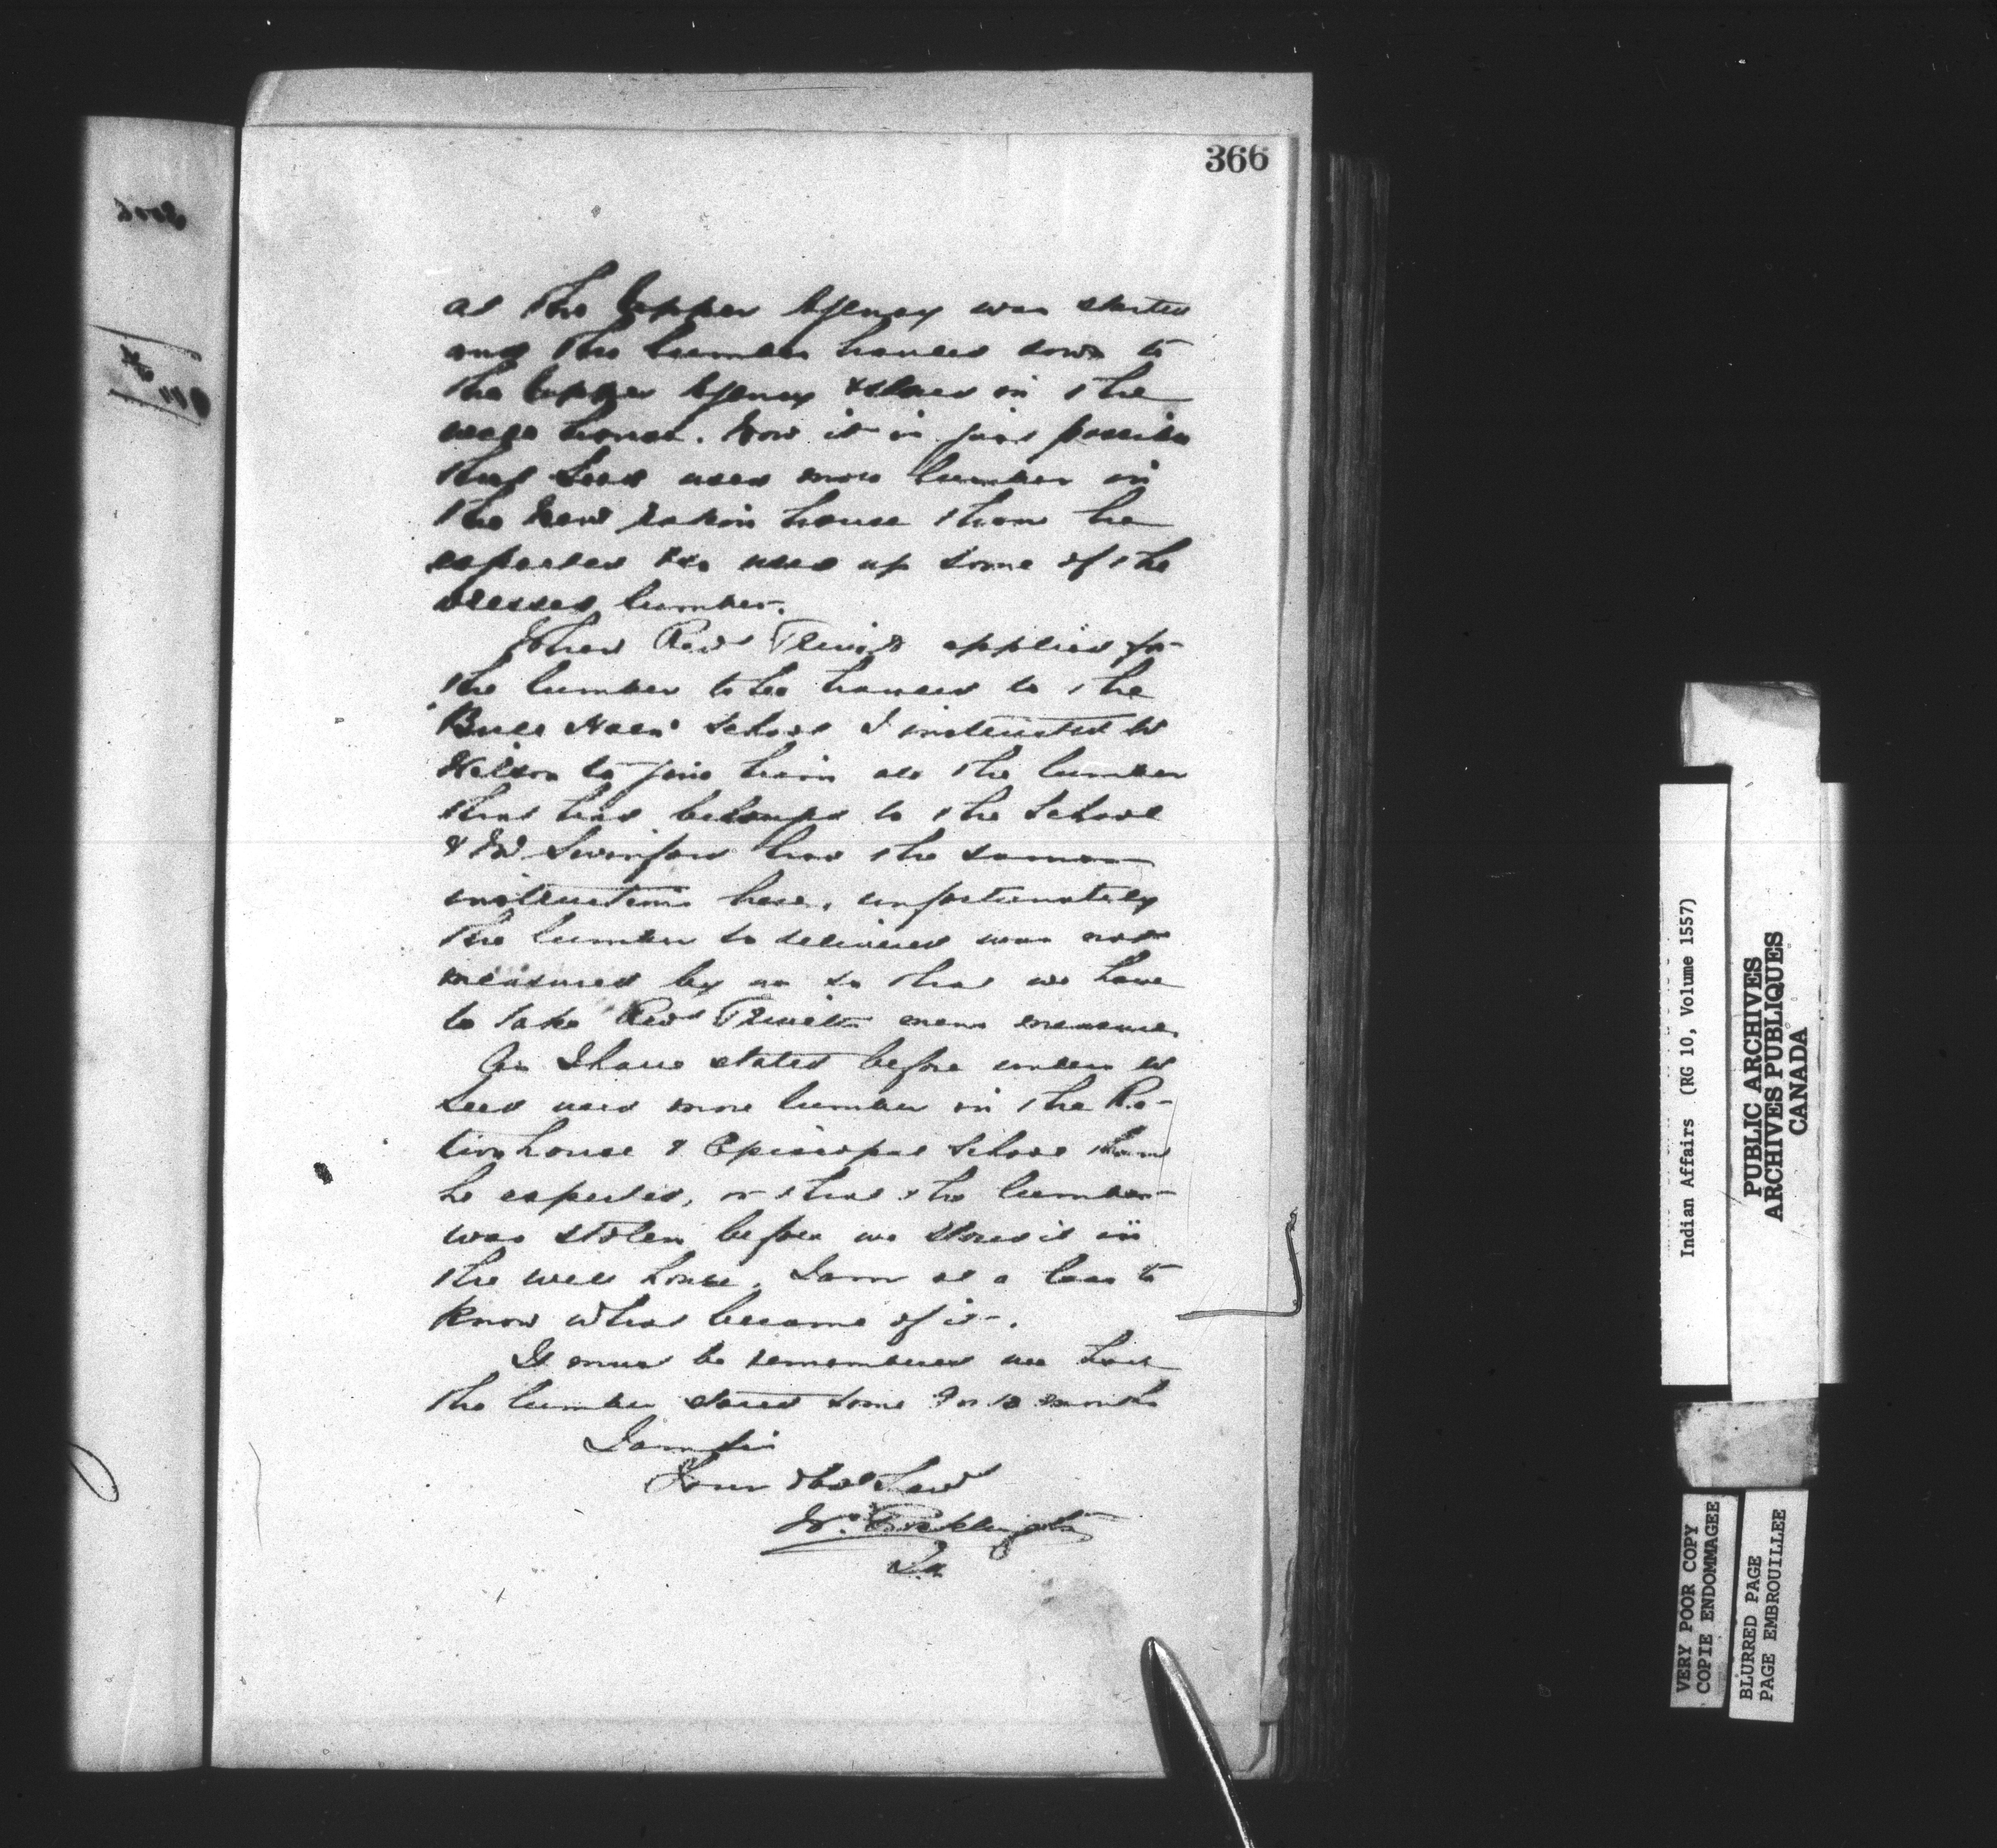 366
at the Upper Agency was started
and the lumber hauled down to
the Upper Agency & stored in the
house. Now it is just possible
that Seed used more lumber in
the New Ration house than he
expected & used up some of the
dressed lumber.
When Revd Trivett applied for
the lumber to be hauled to the
"Bull Horn" School I instructed Mr
Wilson to give him all the lumber
that had belonged to the School
& Mr Swinford had the same
instructions here, unfortunately
the lumber so delivered was not
measured by us so that we have
to take Revd Trivetts mens measure
As I have stated before unless Mr
Seed used more lumber in the Ra-
tion house & Episcopal School than
he expected, or that the lumber
was stolen before we stored it in
the well house, I am at a loss to
know what became of it.
It must be remembered we had
the lumber stored some 9 or 10 months
I am Sir
Your Obdt Servt
W. Pocklington
I.A.
Indian Affairs (RG 10, Volume 1557)
PUBLIC ARCHIVES
ARCHIVES PUBLIQUES
CANADA
VERY POOR COPY
COPIE ENDOMMAGEE
BLURRED PAGE
PAGE EMBROUILLEE